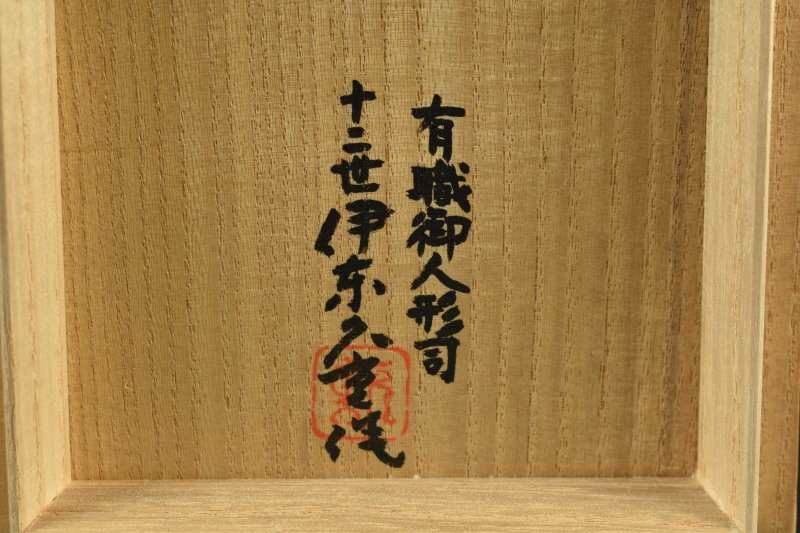 有職御人形司
十二世伊东久重作